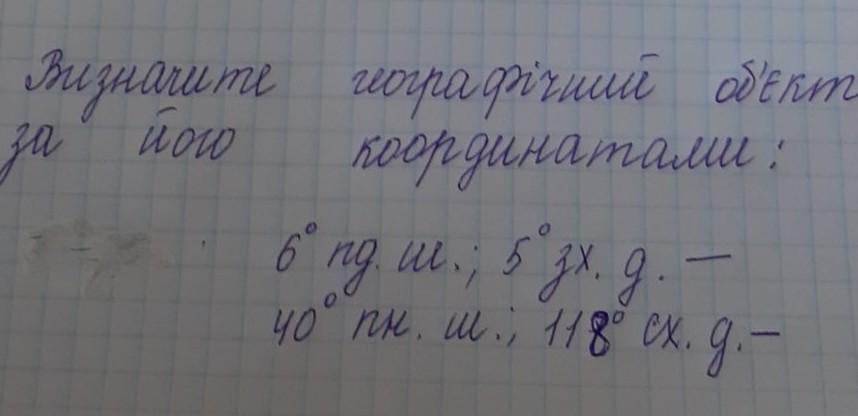 Визначите географічний об'єкт
за його координатами:
6° пд. ш.; 5° зх. д. —
40° пн. ш.; 118° сх. д. —